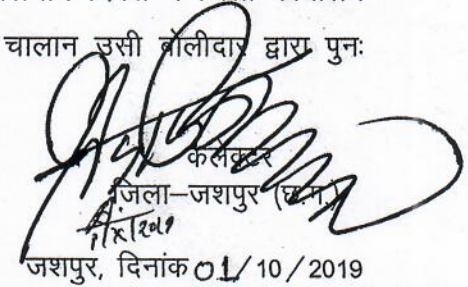 चालान उसी बोलीदार द्वारा पुनः
कलेक्टर
जिला–जशपुर (छ.ग.)
जशपुर, दिनांक 01/10/2019